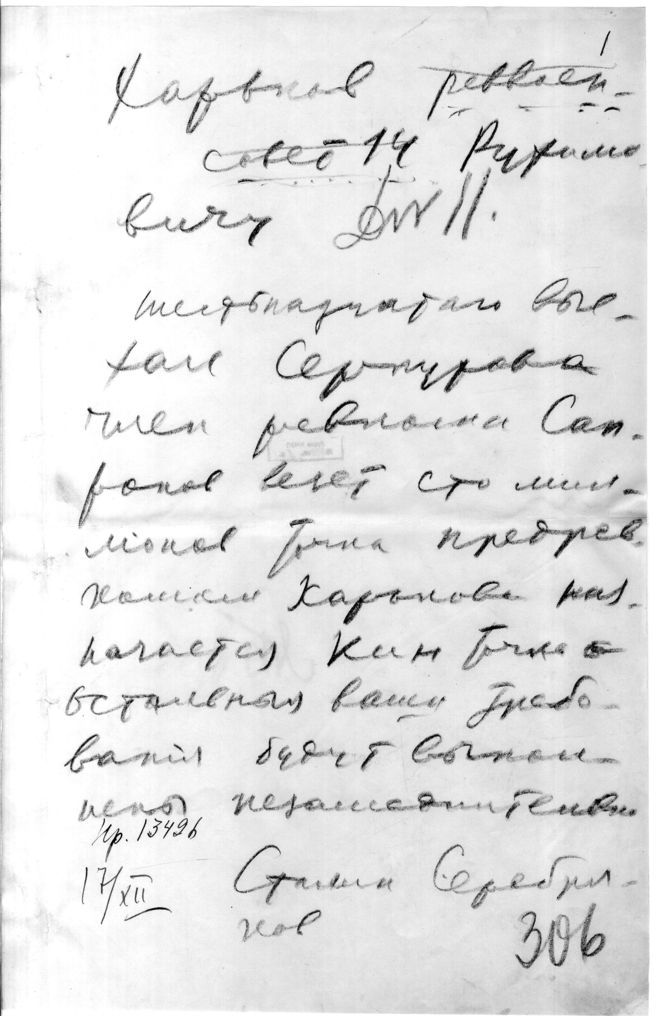 1
Харьков реввоен-
совет 14 Рухимо
вичу
шестьнадцатаго вые-
хал Серпухова
член ревкома Сап-
ронов везет сто мил-
лионов Точка предрев
комом Харькова наз-
начается Кин Точка
Остальныя ваши требо-
вания будут выпол-
нены незамедлительно
Нр. 1349б
17/XII Сталин Серебря-
ков
306